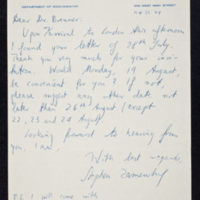 DEPARTMENT OF BIOCHEMISTRY
Dear Dr Brenner:
Upon Arrival to London this afternoon
I found your letter of 28th July.
Thank you very much for your invi-
tation. Would Monday, 19 August,
be convenient for you? If not,
please suggest any other date not
later than 28th August (except
22, 23 and 24 August).
Looking forward to hearing from
you, I am,
With best regards,
Stephen Zamenhof
P.S. I will come with